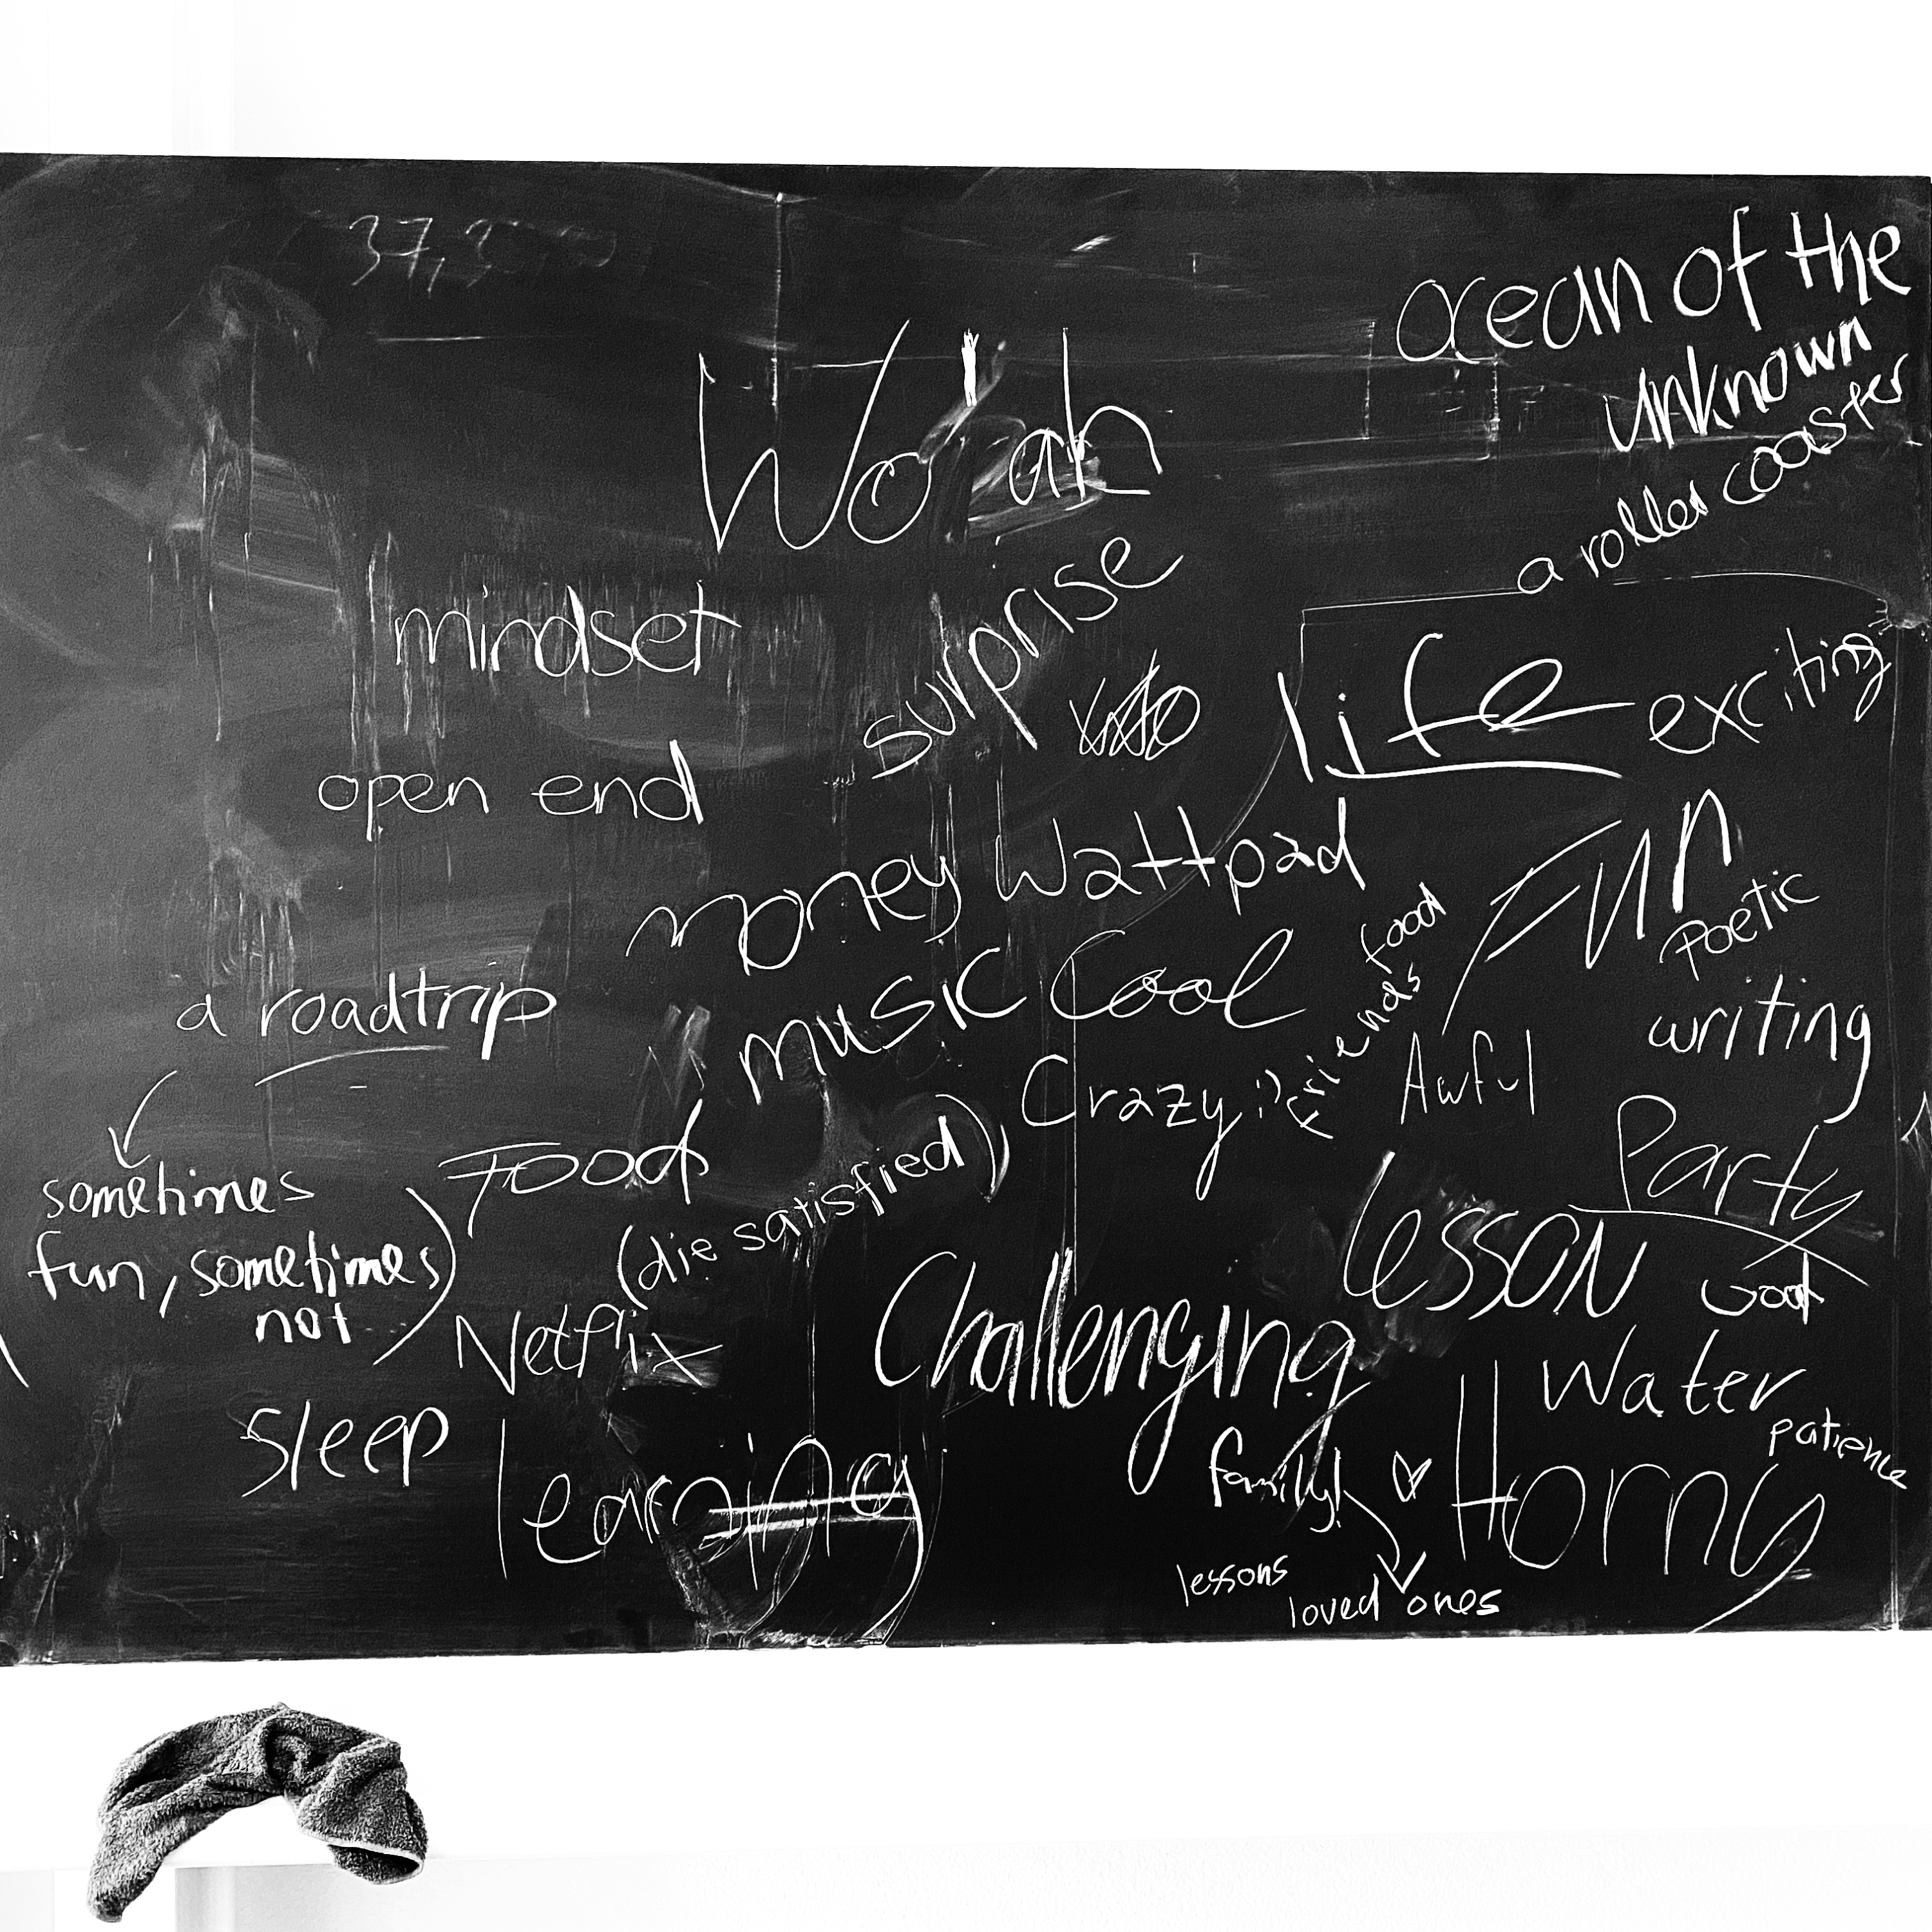 ocean of the
unknown
a roller coaster
Wo ah
mindset
surprise
life
exciting
open end
money
Wattpad
Fun
Poetic
writing
a roadtrip
music
Cool
friends
food
Crazy :)
Awful
Party
sometimes
fun, sometimes
not
Food
(die satisfied)
lesson
Good
Netflix
Challenging
Water
patience
Sleep
learning
family!
Horny
lessons
loved ones